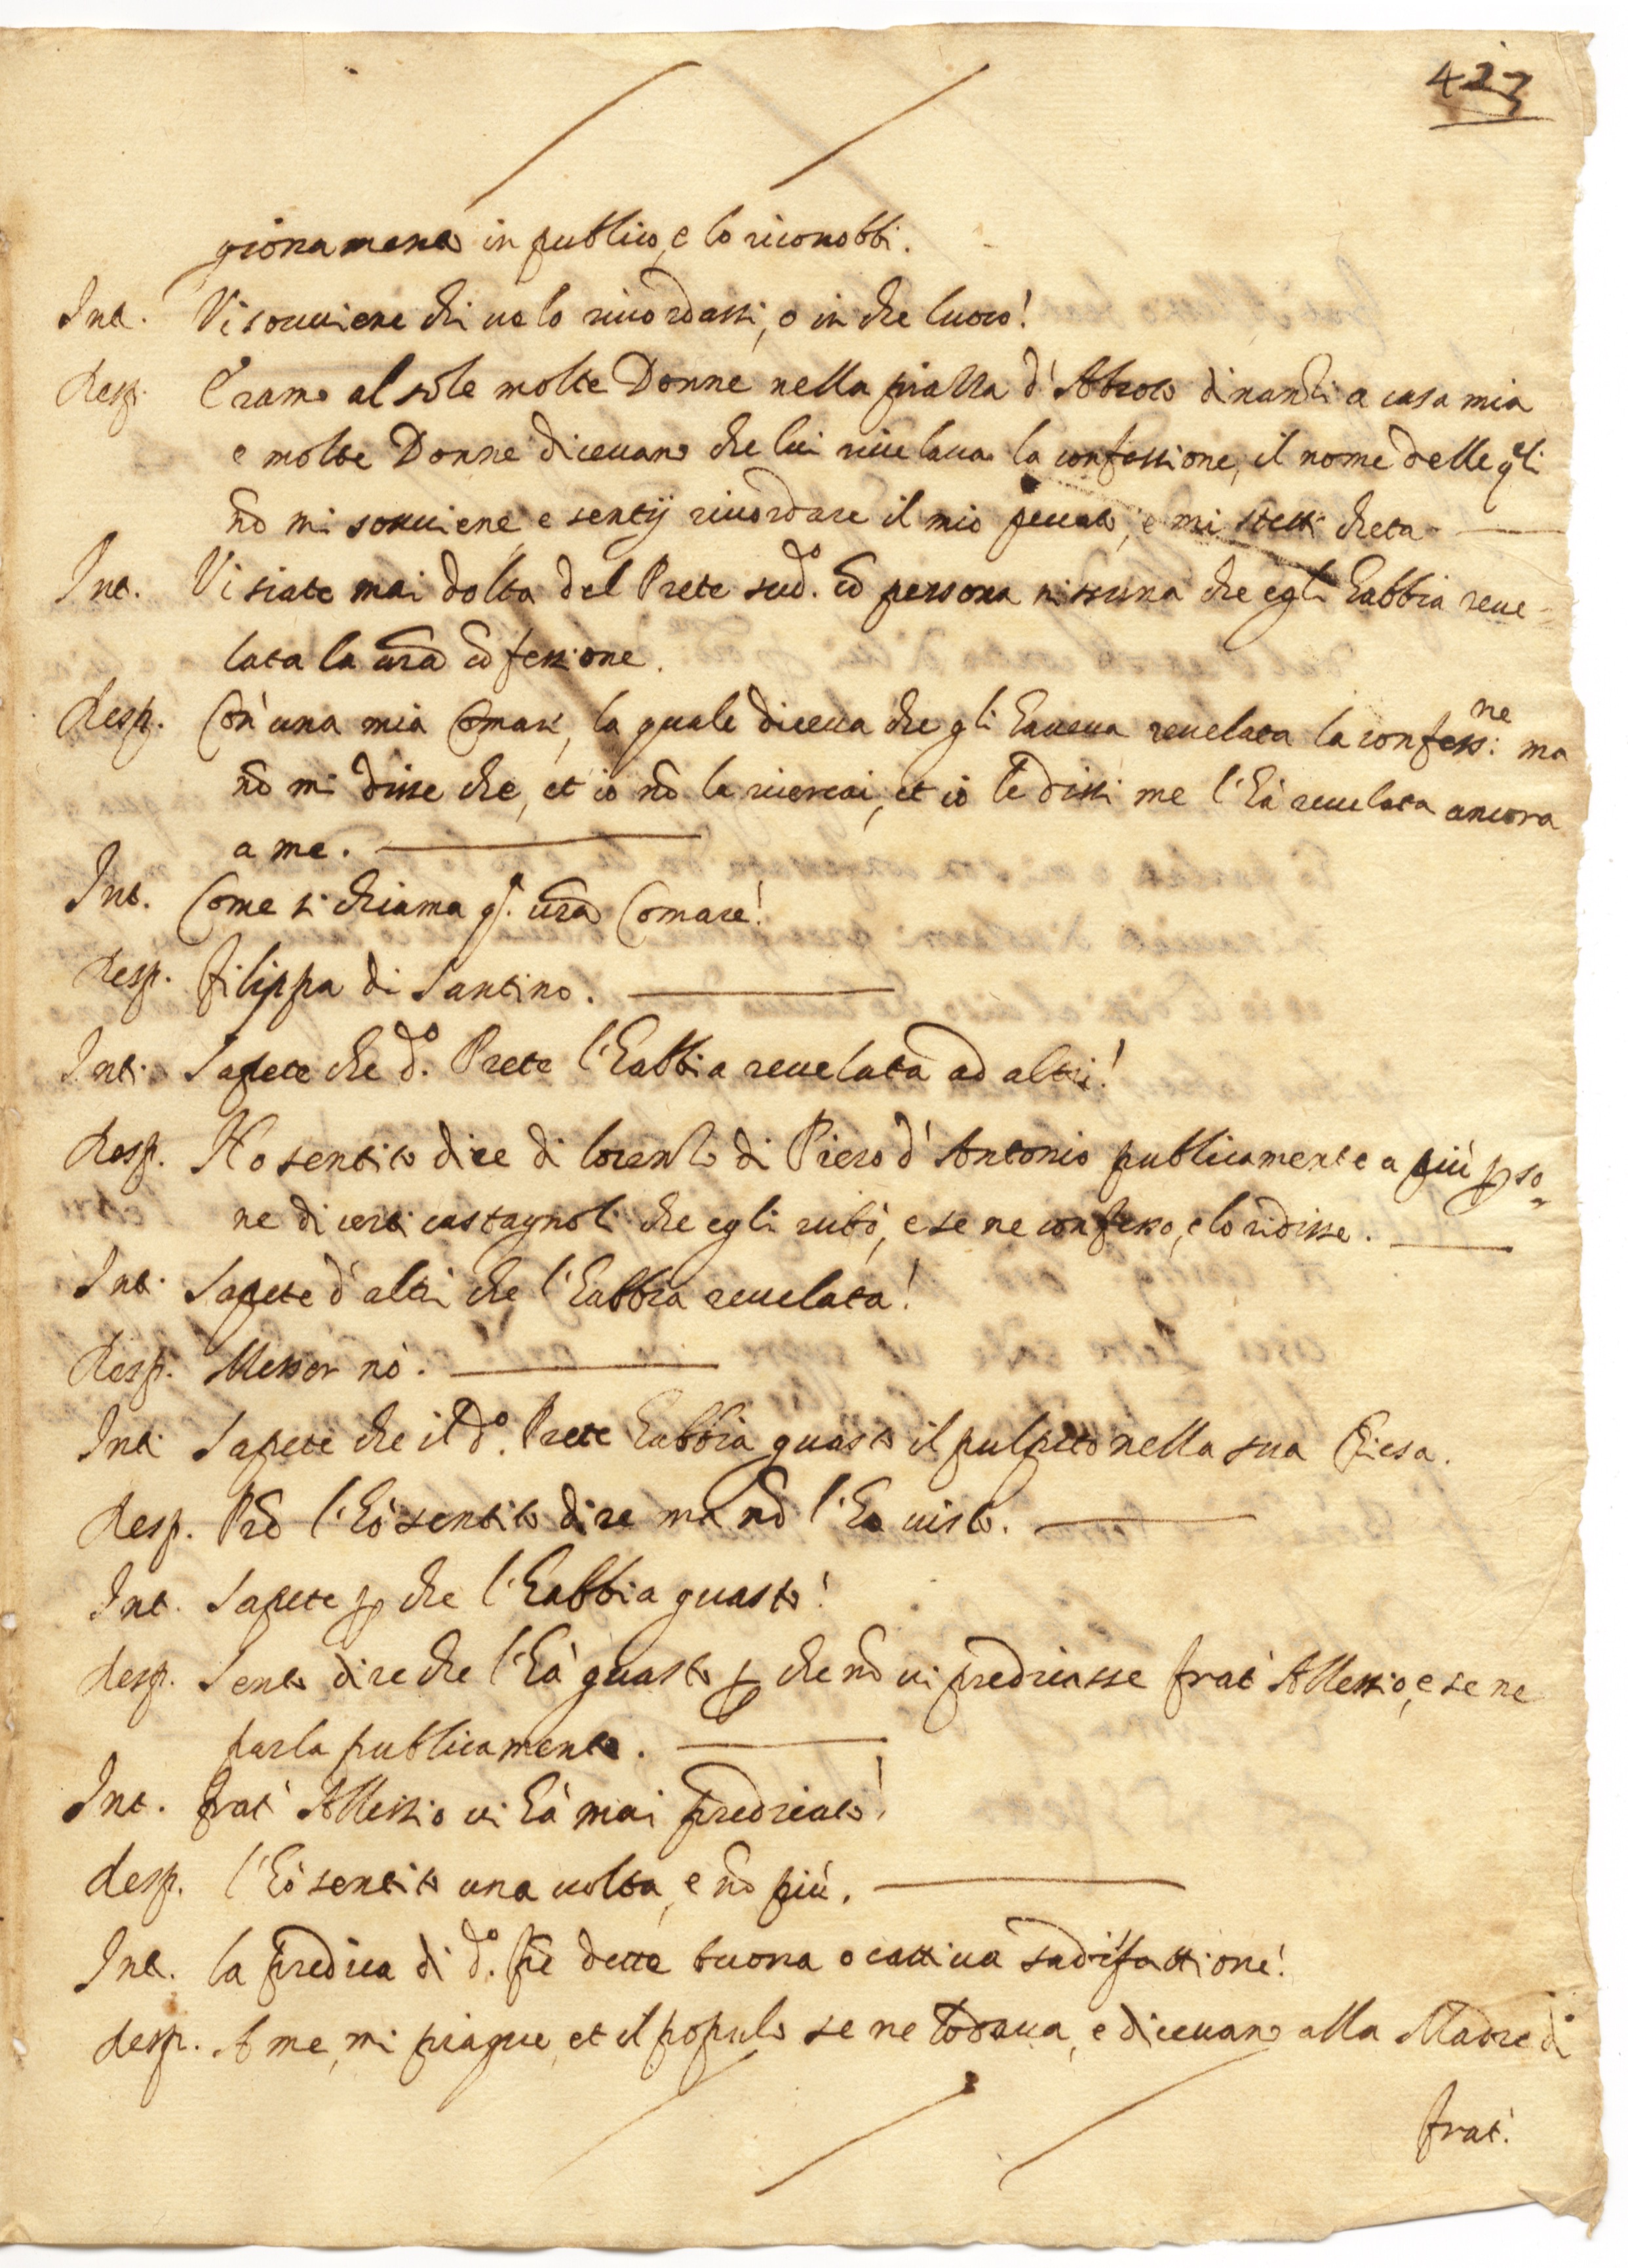 423
gionamento in publico, e lo riconobbi.
Int. Vi souuiene chi ue lo ricordassi, o in che luoco!
Resp. Eramo al sole molte Donne nella piazza d' dinanzi a casa mia
e molte Donne diceuano che lui riuelaua la confessione, il nome delle qli
nō mi souuiene, e sentij ricordare il mio peccato, e mi stetti cheta
Int. Vi siate mai dolta del Prete sud.o cō persona nissuna che egli habbia reue-
lata la vrā cōfessione.
Resp. Con' una mia Comare, la quale diceua che gli haueua reuelata la confess:ne ma
nō mi disse che, et io nō la ricercai, et io le dissi me l'hà reuelata ancora
a me.
Int. Come si chiama q.a vrā Comare!
Resp. Filippa di Santino.
Int. Sapete che d.o Prete l'habbia reuelata ad altri!
Resp. Ho sentito dire di lorenzo di Piero d'Antonio publicamente a più pso-
ne di certi castagnoli che egli rubò, e se ne confesso, e lo ridisse.
Int. Sapete d'altri che l'habbia reuelata!
Resp. Messer nò.
Int. Sapete che il d.o Prete habbia guasto il pulpito nella sua Chiesa.
Resp. Prē l'hò sentito dire ma nō l'ho uisto.
Int. Sapete p che l'habbia guasto!
Resp. Sento dire che l'hà guasto p che nō ui predicasse frat' Alessio, e se ne
parla publicamente.
Int. frat' Alessio ui hà mai predicato!
Resp. l'hò sentito una uolta, e nō più.
Int. la predica di d.o frē dette buona o cattiua sadisfattione!
Resp. A me, mi piaque, et il populo se ne lodaua, e diceuano alla Madre di
frat'